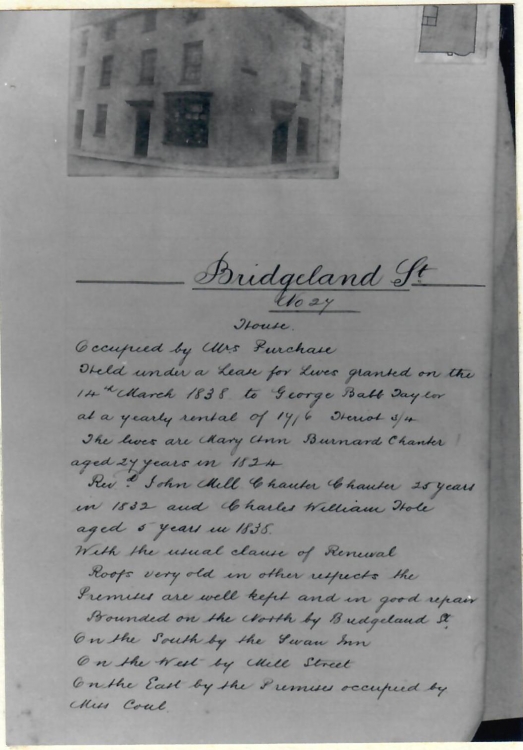 Bridgeland St.
No 27
House.
Occupied by Mrs Purchase
Held under a Lease for Lives granted on the
14th March 1838 to George Babb Taylor
at a yearly rental of 17/6 Heriot 3/4
The lives are Mary Ann Burnard Chanter
aged 27 years in 1824
Revd John Mill Chanter Chanter 25 years
in 1832 and Charles William Hole
aged 5 years in 1838
With the usual clause of Renewal
Roofs very old in other respects the
Premises are well kept and in good repair
Bounded on the North by Bridgeland St.
On the South by the Swan Inn
On the West by Mill Street
On the East by the Premises occupied by
Miss